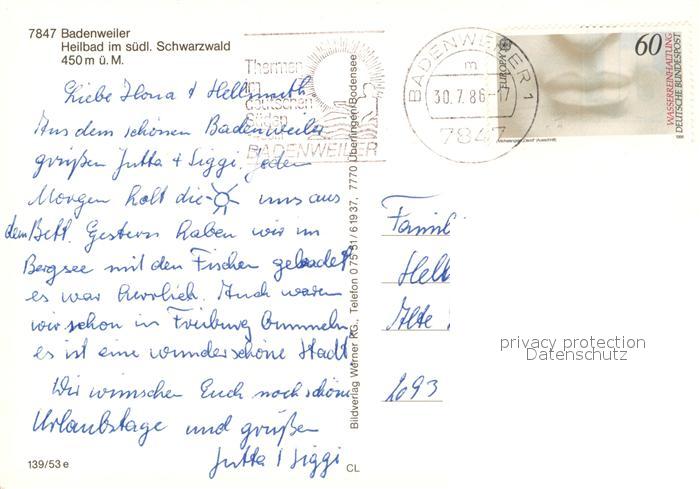 7847 Badenweiler
Heilbad im südl. Schwarzwald
450 m ü. M.
Liebe Ilona & Hellmuth
Aus dem schönen Badenweiler
grüßen Jutta + Siggi. Jeden
Morgen holt die uns aus
dem Bett. Gestern haben wir im
Bergsee mit den Fischen gebadet
es war herrlich. Auch waren
wir schon in Freiburg bummeln,
es ist eine wunderschöne Stadt.
Wir wünschen Euch noch schöne
Urlaubstage und grüßen
Jutta + Siggi
139/53 e
CL
Bildverlag Werner KG., Telefon 0 75 51 / 6 19 37, 7770 Überlingen/Bodensee
Thermen
im
deutschen
Süden
BADENWEILER
BADENWEILER 1
m
30.7.86-17
7847
EUROPA
60
WASSERREINHALTUNG
DEUTSCHE BUNDESPOST
1986
Famil
Hell
Alte
2093
privacy protection
Datenschutz